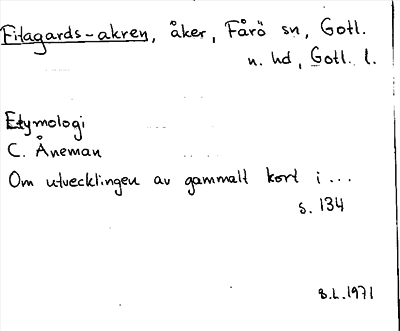 Fitagards-akren, åker, Fårö sn, Gotl.
n. hd, Gotl. l.
Etymologi
C. Åneman
Om utvecklingen av gammalt kort i ...
s. 134
B.L.1971